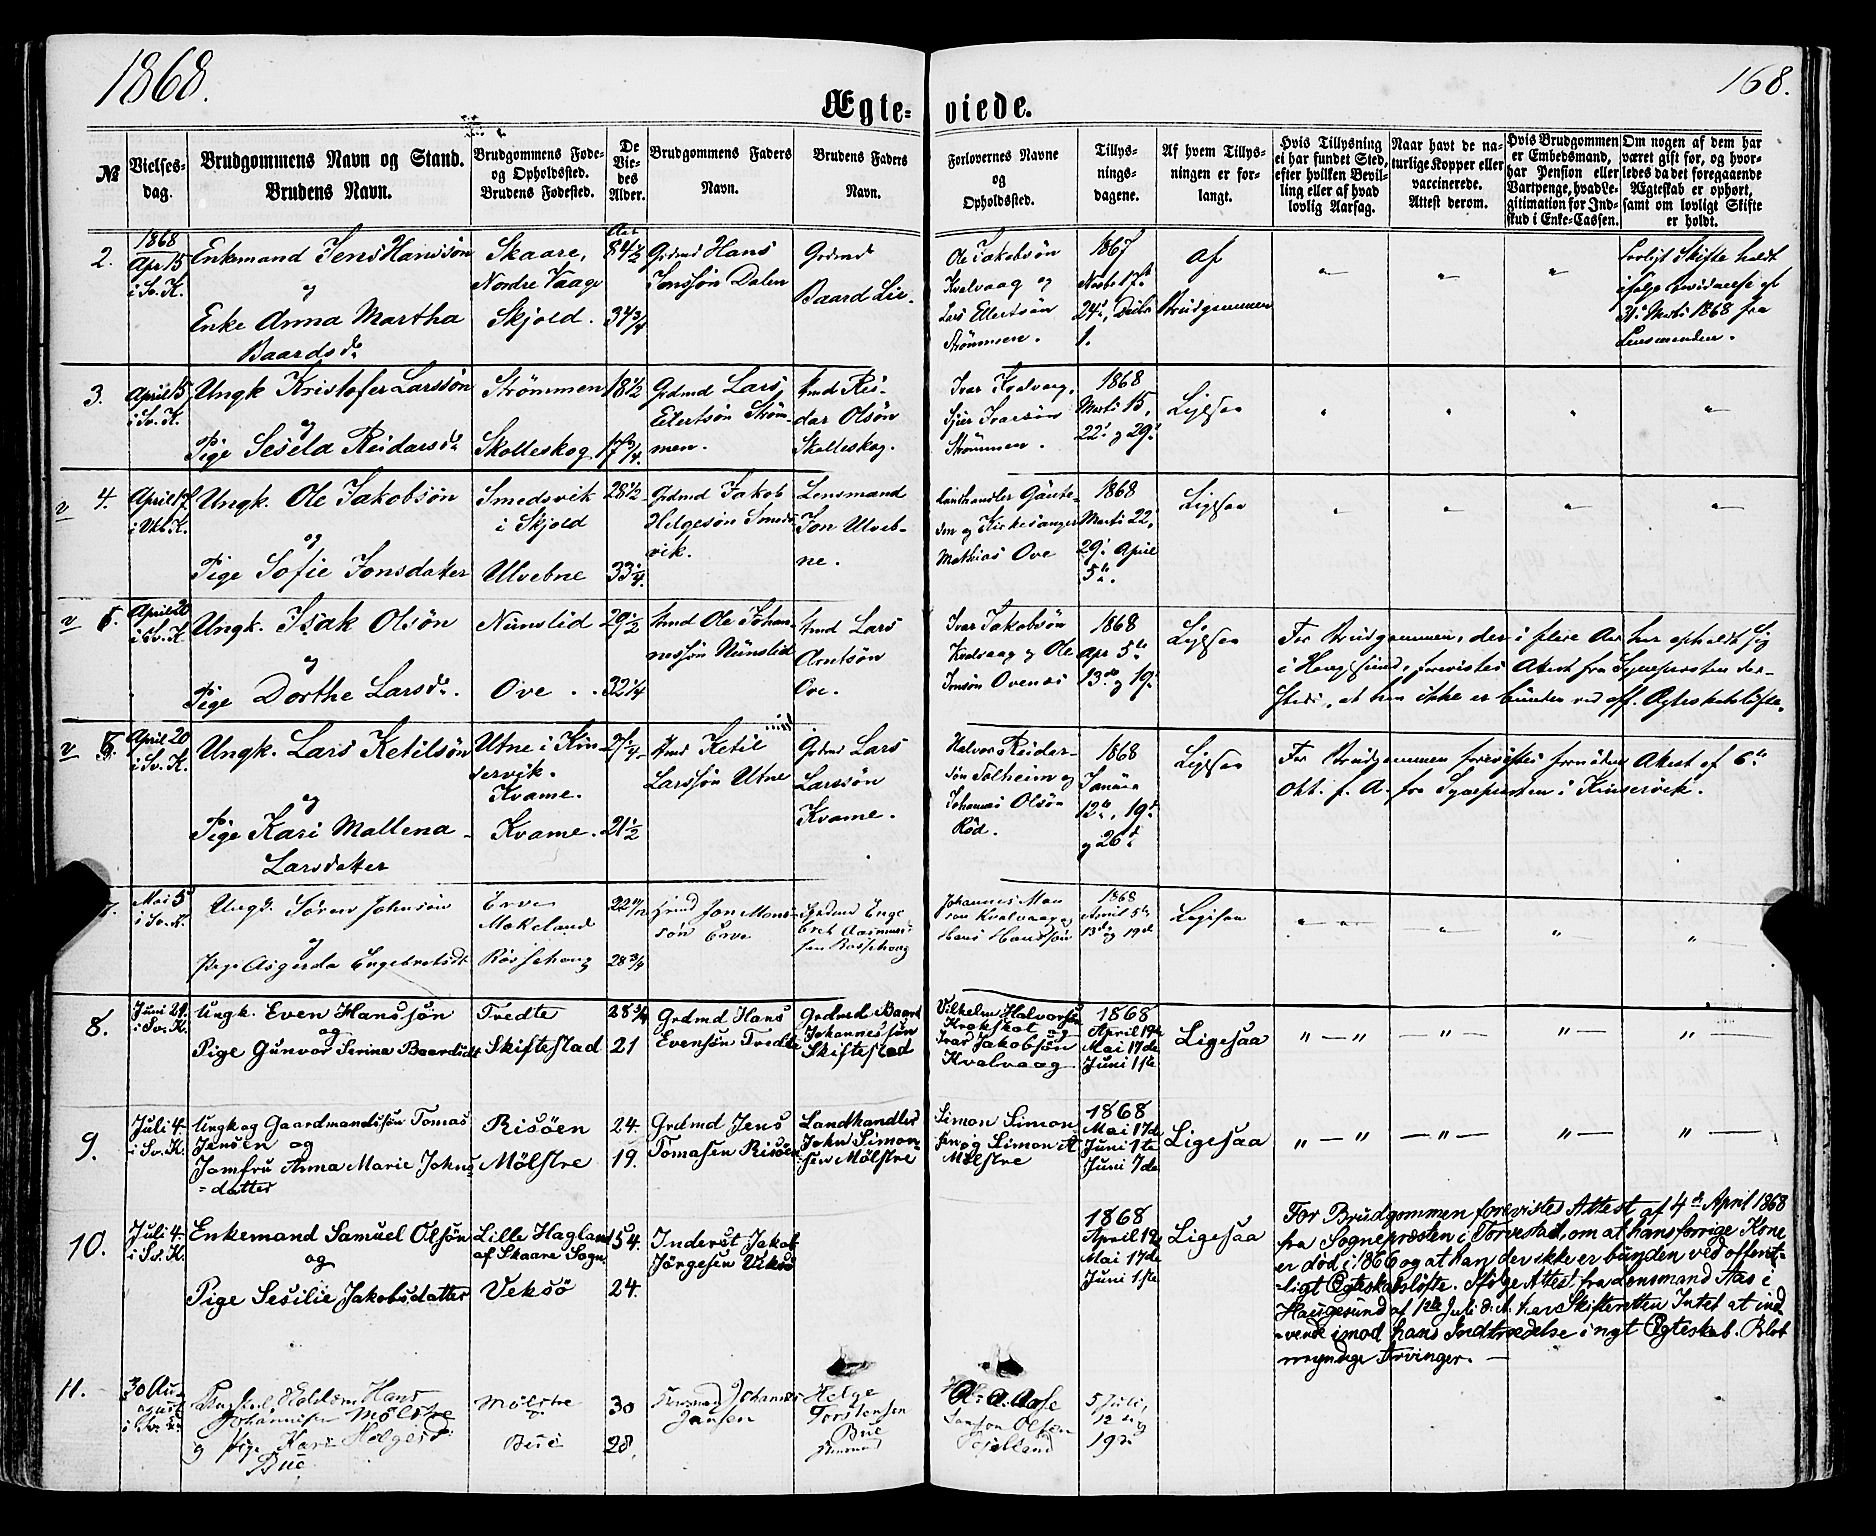 1868.
168.
Ægteviede.
№
Vielsesdag.
Brudgommens Navn og Stand.
Brudens Navn.
Brudgommens Føde- og Opholdssted.
Brudens Fødested.
De Viedes Alder.
Brudgommens Faders Navn.
Brudens Faders Navn.
Forlovernes Navne og Opholdssted.
Tillysningsdagene.
Af hvem Tillysningen er forlangt.
Hvis Tillysning ei har fundet Sted, efter hvilken Bevilling eller af hvad lovlig Aarsag.
Naar havt de naturlige Kopper eller vaccinerede. Attest derom.
Hvis Brudgommen er Embedsmand, har Pension eller Vartpenge, hvad Legitimation for Indskud i Enke-Cassen.
Om nogen af dem har været gift før, og hvorledes da det foregaaende Ægteskab er ophørt, samt om lovligt Skifte er holdt.
2.
1868
Apr 15
i Sv. K.
Enkemand Jens Hanssøn
og
Enke Anna Martha
Baardsdr
Skaare,
Nordre Vaage
Skjold.
Aar
84½
34¾
Grdmd Hans
Jonssøn Dalen
Grdmd
Baard Lie.
Ole Jakobsøn
Kvalvaag og
Lars Ellertsøn
Strømmen.
1867
Novbr 17de
24de, Decbr
1.
Af
Brudgommen
Lovligt Skifte holdt
ifølge
31te Marts 1868 fra
Lensmanden.
3.
April 15
i Sv. K.
Ungk Kristofer Larssøn
og
Pige Sesela Reidarsdr
Strømmen
Skolleskog
18½
17¾
Grdmd Lars
Elertsøn Strømmen.
Hmd Reidar Olsøn
Skolleskog.
Ivar Kvalvaag,
Sjur Ivarsøn
Strømmen.
1868
Marts 15,
22de og 29de
Ligesaa
v 4.
April 17
i Utb. K.
Ungk. Ole Jakobsøn
og
Pige Sofie Jonsdatter
Smedsvik
i Skjold
Ulvebne
28½
33¼
Grdmd Jakob
Helgesøn Smedsvik.
Lensmand
Jon Ulvebne.
Landhandler
og Kirkesanger
Mathias Ove
1868
Marts 22,
29de April
5te.
Ligesaa
v 5.
April 20
i Sv. K.
Ungk. Isak Olsøn
og
Pige Dorthe Larsdr.
Nunslid
Ove.
29½
32¼
Hmd Ole Johannessøn Nunslid
Hmd Lars
Arntsøn
Ove.
Ivar Jakobsøn
Kvalvaag og Ole
Jonsøn Ovenæs
1868
Apr 5te
13de og 19de
Ligesaa
For Brudgommen, der i flere Aar har opholdt sig
i Haugesund, forevistes Attest fra Sognepræsten dersteds, at han ikke er bunden ved off. Ægteskabsløfte.
v 6.
April 20
i Sv. K.
Ungk. Lars Ketilsøn
og
Pige Kari Mallena
Larsdatter
Utne i Kinservik.
Kvame.
Kvame.
27¼
21½
Hmd Ketil
Larssøn Utne
Grdmd Lars
Larssøn
Kvame.
Halvor Reidarsøn Solheim og
Johannes Olsøn
Rød.
1868
Januar
12te, 19de
og 26de
Ligesaa
For Brudgommen forevistes fornøden Attest af 6te
Okt. f. A. fra Sognepræsten i Kinservik.
7.
Mai 5
i Sv. K.
Ungk. Søren Johnsøn
og
Pige Asgerda Engebretsdr
Erve
Mokeland
Røssehoug
28¾
Grdmd Jon Monssøn Erve
Grdmd Engebret
Røssehoug
Johannes Monsen Kvalvaag og
Hans Hanssøn
1868
April 5te
13de og 19de
Ligesaa
8.
Juni 21.
i Sv. K.
Ungk. Even Hanssøn
og
Pige Gunvor Serine Baardsdt
Tredte
Skiftestad
28¾
21
Grdmd Hans
Evensøn Tredte
Grdmd Baard
Johannessøn
Skiftestad
Vilhelm Halvorsen
Krakskot og
Ivar Jakobsøn
Kvalvaag
1868
April 19de
Mai 17de
Juni 1ste
Ligesaa
9.
Juli 4.
i Sv. K.
Ungk og Gaardmandssøn Tomas
Jensen og
Jomfru Anna Marie Johns-
-datter
Risøen
Mølstre
24.
19.
Grdmd Jens
Tomasen Risøen
Landhandler
John Simonsen Mølstre
Simon Simonsen og Simon A
Mølstre
1868
Mai 17de
Juni 1te
Juni 7de
Ligesaa
10.
Juli 4.
i Sv. K.
Enkemand Samuel Olsøn
og
Pige Sesilie Jakobsdatter
Lille Hagland
af Skaare Sogn
Veksø
54.
24.
Inderst Jakob
Jørgesen Veksø
1868
April 19de
Mai 17de
Juni 1ste
Ligesaa
For Brudgommen forevistes Attest af 4de April 1868
fra Sognepræsten i Torvestad, om at hans forrige Kone
er død i 1866 og at han der ikke er bunden ved offent-
-ligt Ægteskabsløfte. Ifølge Attest fra Lensmand Aas i
Haugesund af 1ste Juli d. A. har Skifteretten Intet at ind-
-vende imod hans Indtrædelse i nyt Ægteskab. Blot
myndige Arvinger.
11.
30 August
i Sv. K.
Hans
Johannesen Mølstre
og Pige Kari Helgesd.
Bue
Mølstre
Bue
30
28.
Johannes
Jansen
Helge
Torstensen
Bue
A. Aase
Olsen
5 Juli,
12 og
19de